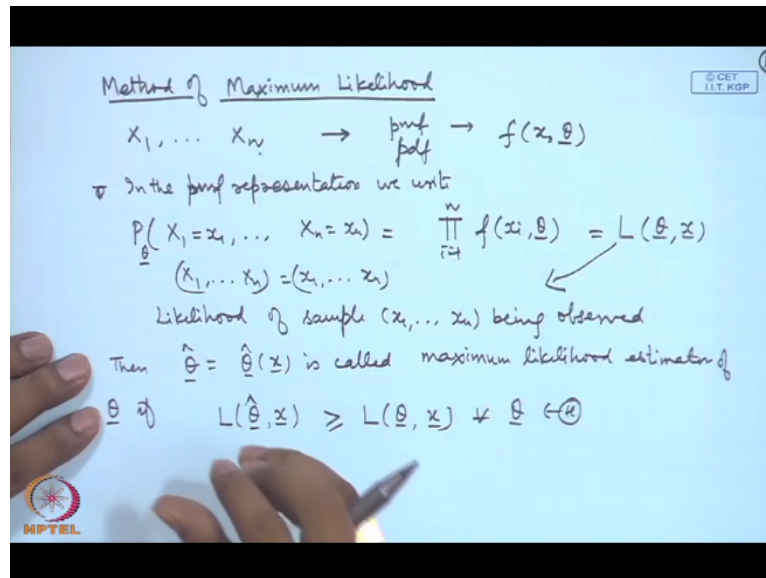 Method of Maximum Likelihood
© CET
I.I.T. KGP
X₁, ... Xₙ → pmf → f(x, θ)
pdf
In the pmf representation we write
P_θ( X₁ = x₁, ... Xₙ = xₙ) = ∏ᵢ₌₁ⁿ f(xᵢ, θ) = L(θ, x)
(X₁, ... Xₙ) = (x₁, ... xₙ)
Likelihood of sample (x₁, ... xₙ) being observed
Then θ̂ = θ̂(x) is called maximum likelihood estimator of
θ if L(θ̂, x) ≥ L(θ, x) ∀ θ ∈ Ⓗ
NPTEL